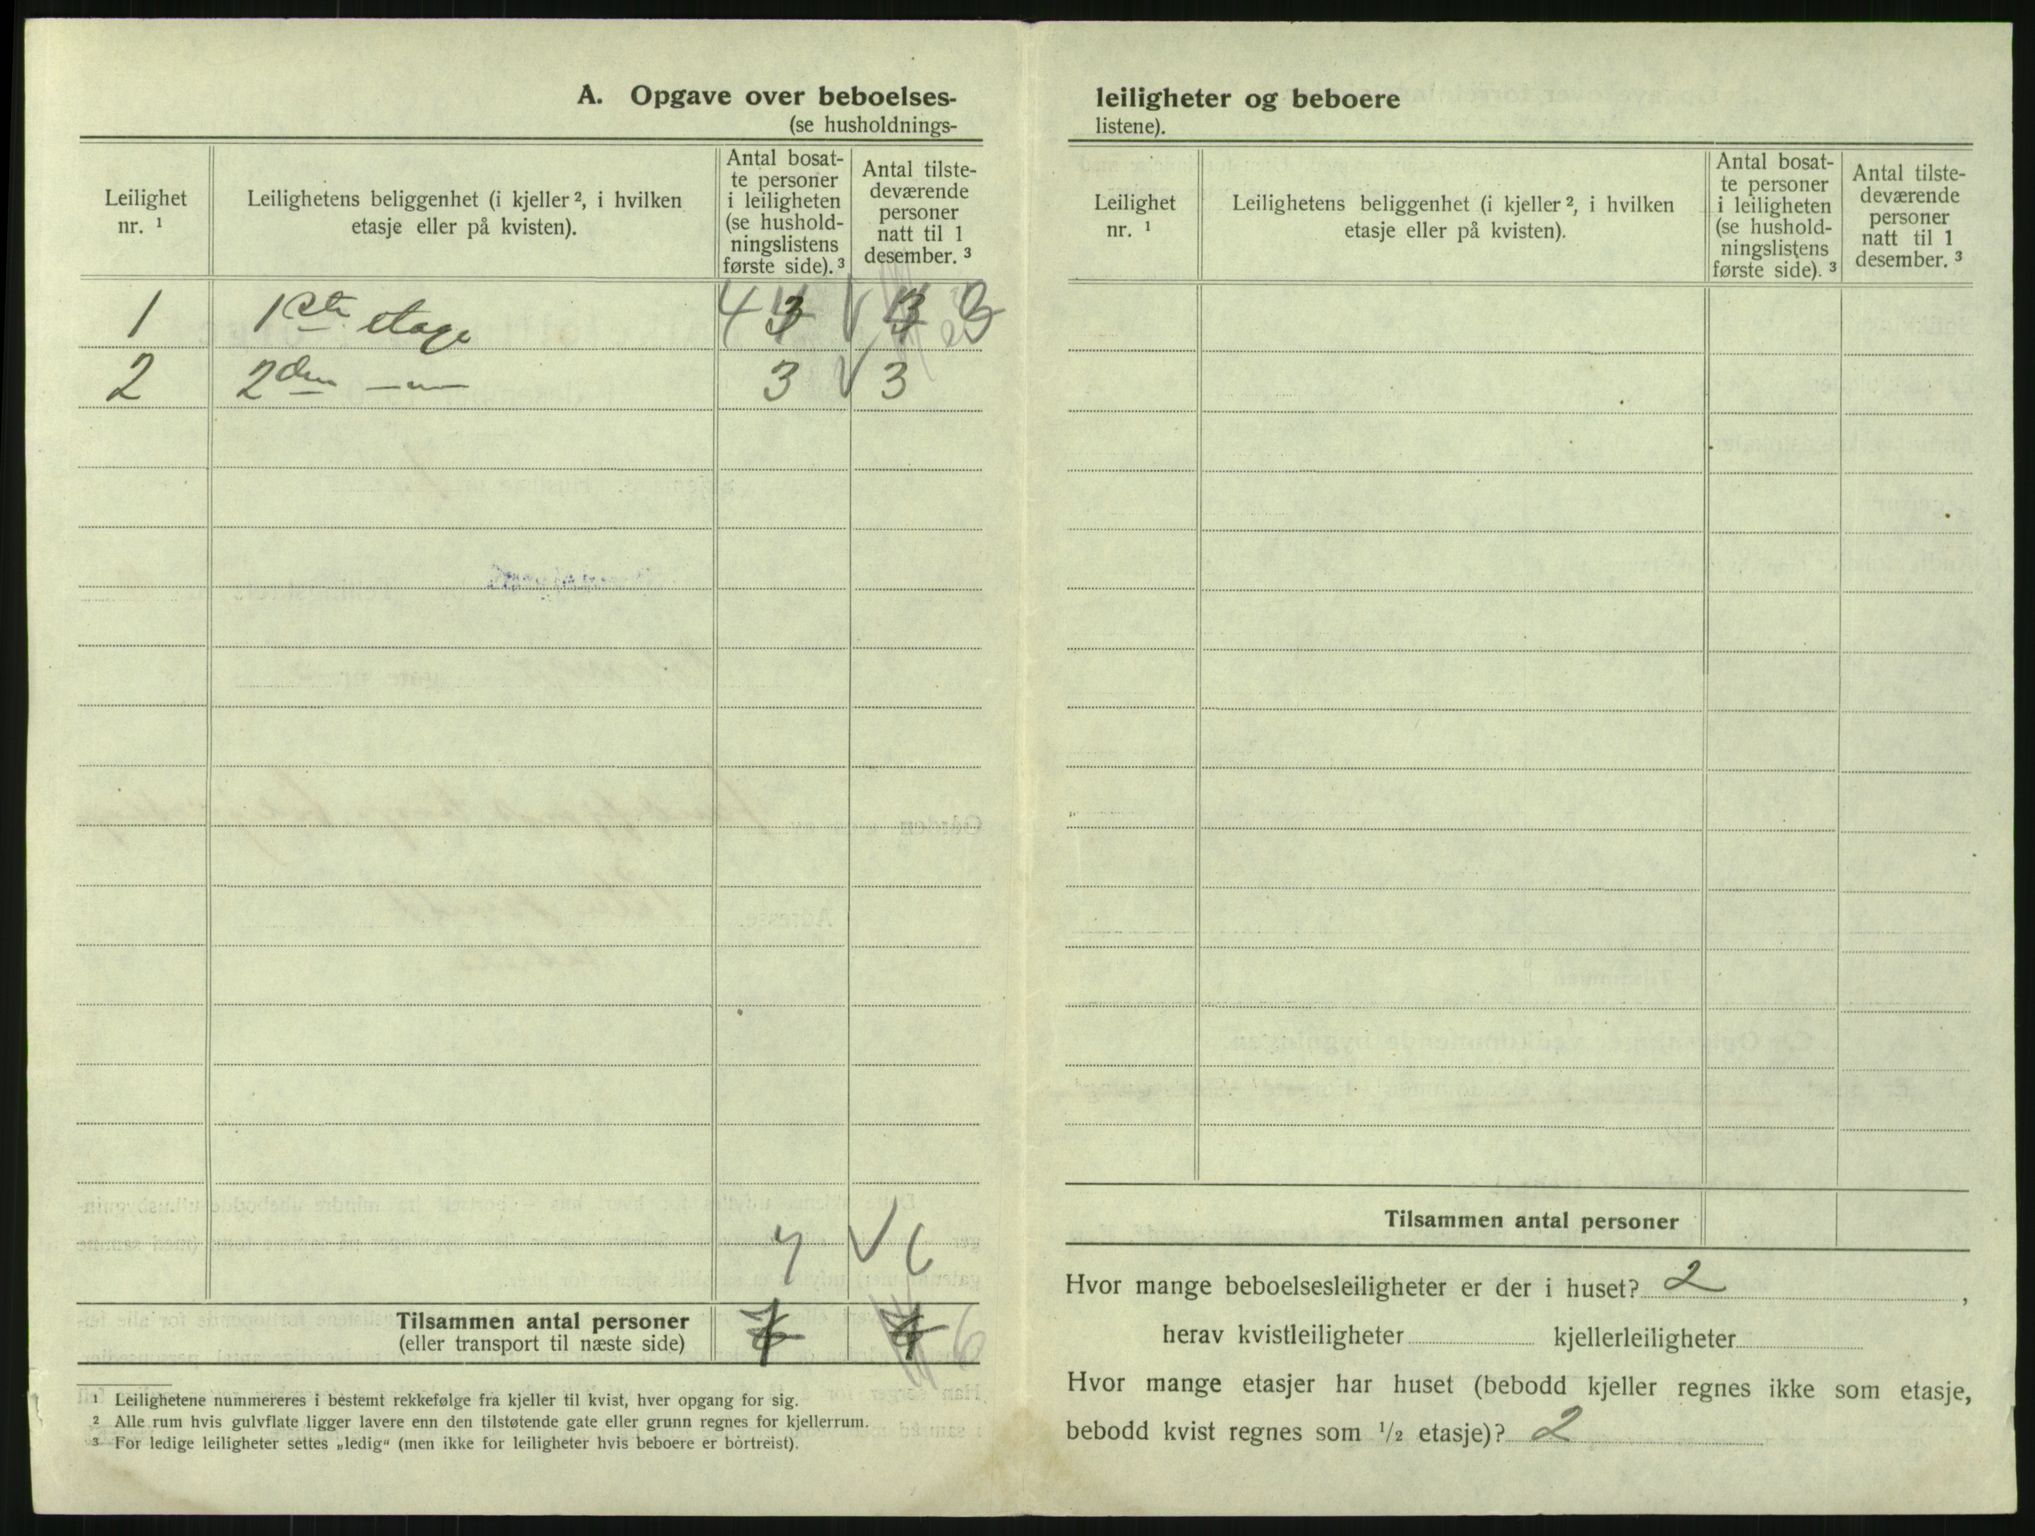 A. Opgave over beboelses-
(se husholdnings-
Leilighet
nr. ¹
Leilighetens beliggenhet (i kjeller ², i hvilken
etasje eller på kvisten).
Antal bosat-
te personer
i leiligheten
(se hushold-
ningslistens
første side). ³
Antal tilste-
deværende
personer
natt til 1
desember. ³
1 1ste etage 4 3 3
2 2den —„— 3 3
7 6
Tilsammen antal personer
(eller transport til næste side)
7 6
¹ Leilighetene nummereres i bestemt rekkefølge fra kjeller til kvist, hver opgang for sig.
² Alle rum hvis gulvflate ligger lavere enn den tilstøtende gate eller grunn regnes for kjellerrum.
³ For ledige leiligheter settes „ledig“ (men ikke for leiligheter hvis beboere er bortreist).
leiligheter og beboere
listene).
Leilighet
nr. ¹
Leilighetens beliggenhet (i kjeller ², i hvilken
etasje eller på kvisten).
Antal bosat-
te personer
i leiligheten
(se hushold-
ningslistens
første side). ³
Antal tilste-
deværende
personer
natt til 1
desember. ³
Tilsammen antal personer
Hvor mange beboelsesleiligheter er der i huset? 2 ,
herav kvistleiligheter kjellerleiligheter
Hvor mange etasjer har huset (bebodd kjeller regnes ikke som etasje,
bebodd kvist regnes som ½ etasje)? 2